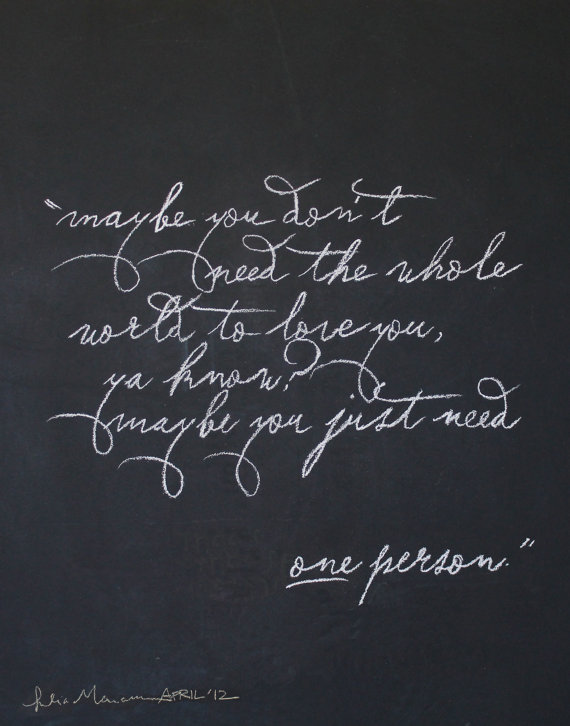 "maybe you don't
need the whole
world to love you,
ya know?
maybe you just need
one person."
APRIL '12